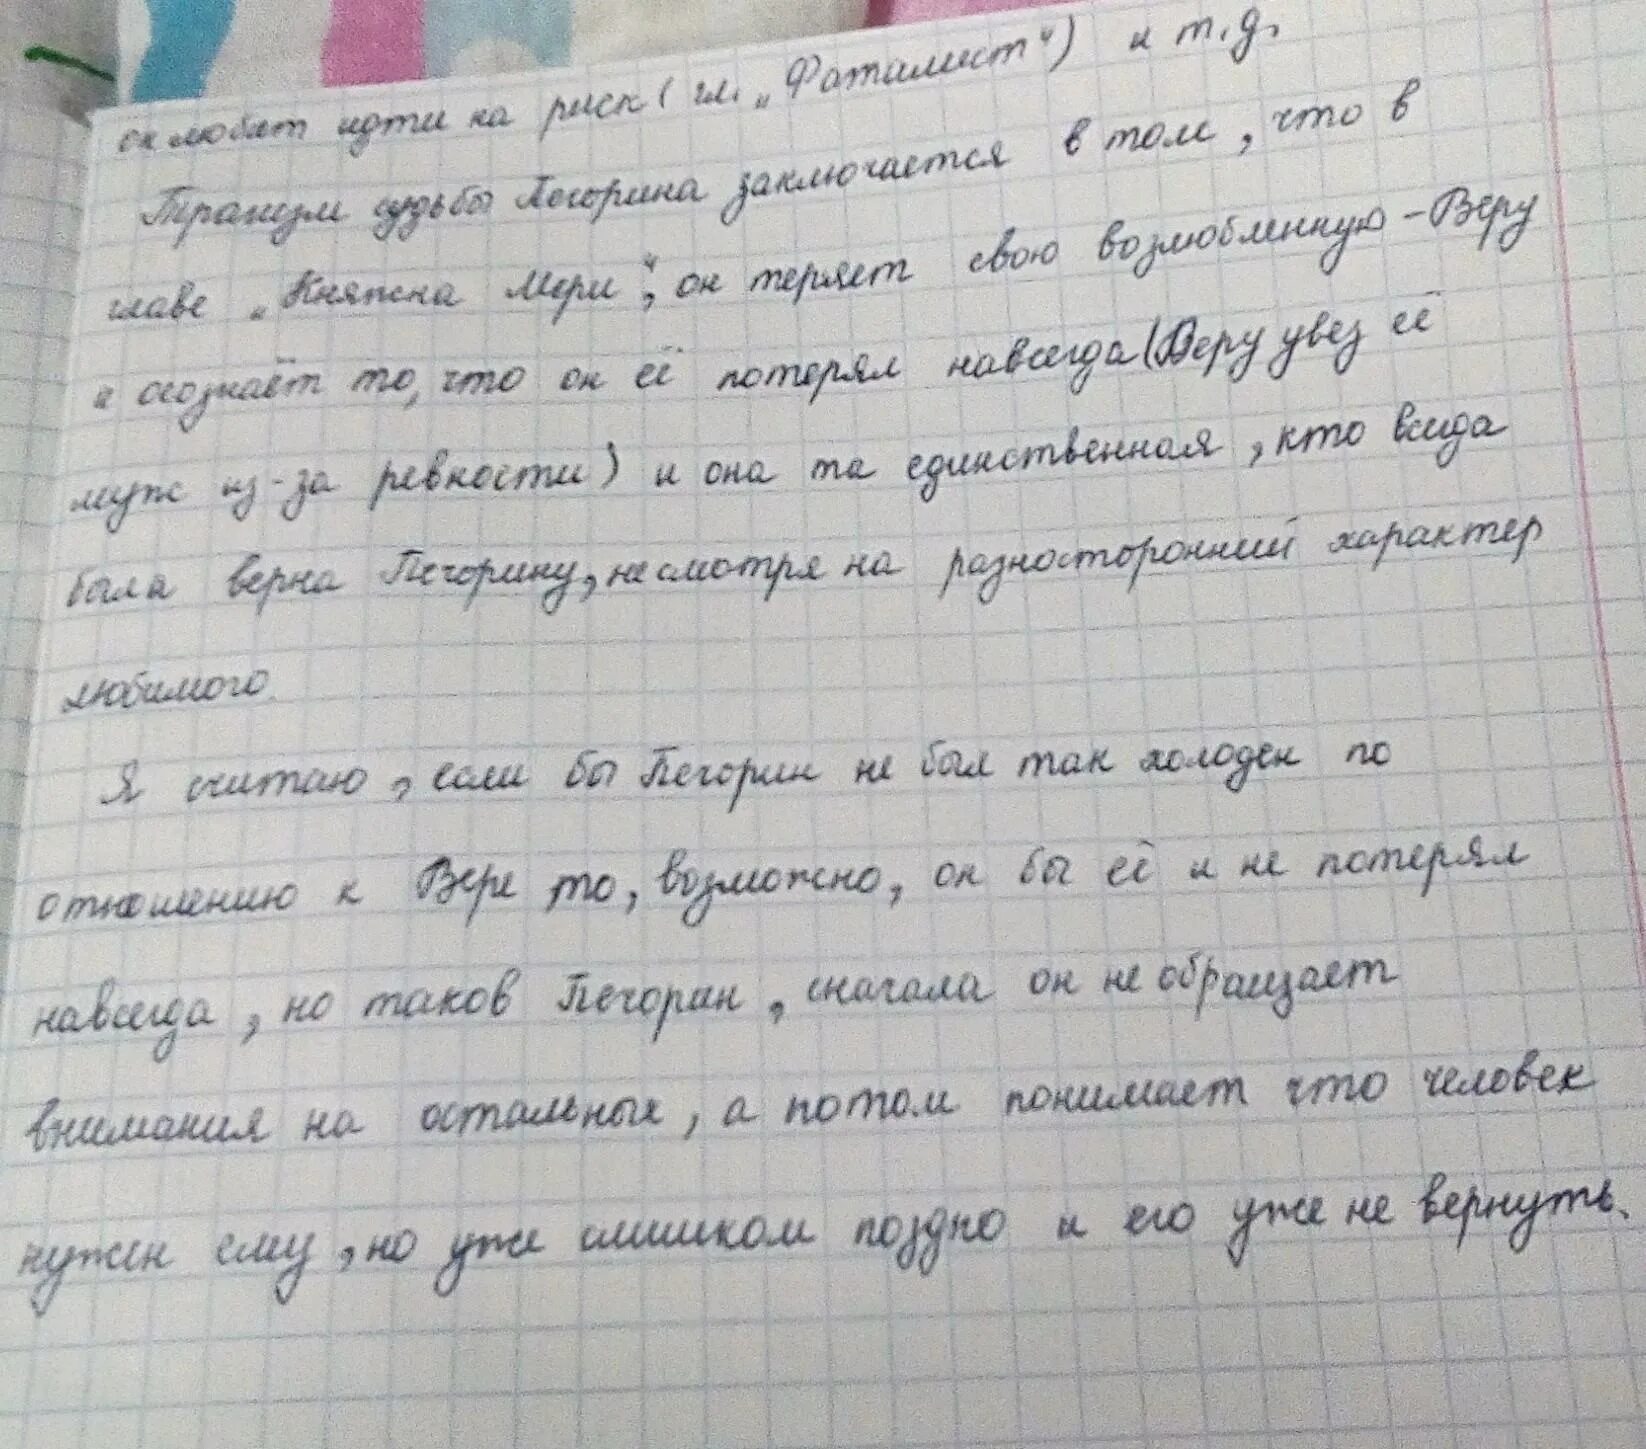 он любит идти на риск (гл. „Фаталист“) и т.д.
Трагизм судьбы Печорина заключается в том, что в
главе „Княжна Мери“, он теряет свою возлюбленную – Веру
и осознаёт то, что он её потерял навсегда (Веру увез её
муж из-за ревности) и она та единственная, кто всегда
была верна Печорину, несмотря на разносторонний характер
любимого.
Я считаю, если бы Печорин не был так холоден по
отношению к Вере то, возможно, он бы её и не потерял
навсегда, но таков Печорин, сначала он не обращает
внимания на остальных, а потом понимает что человек
нужен ему, но уже слишком поздно и его уже не вернуть.